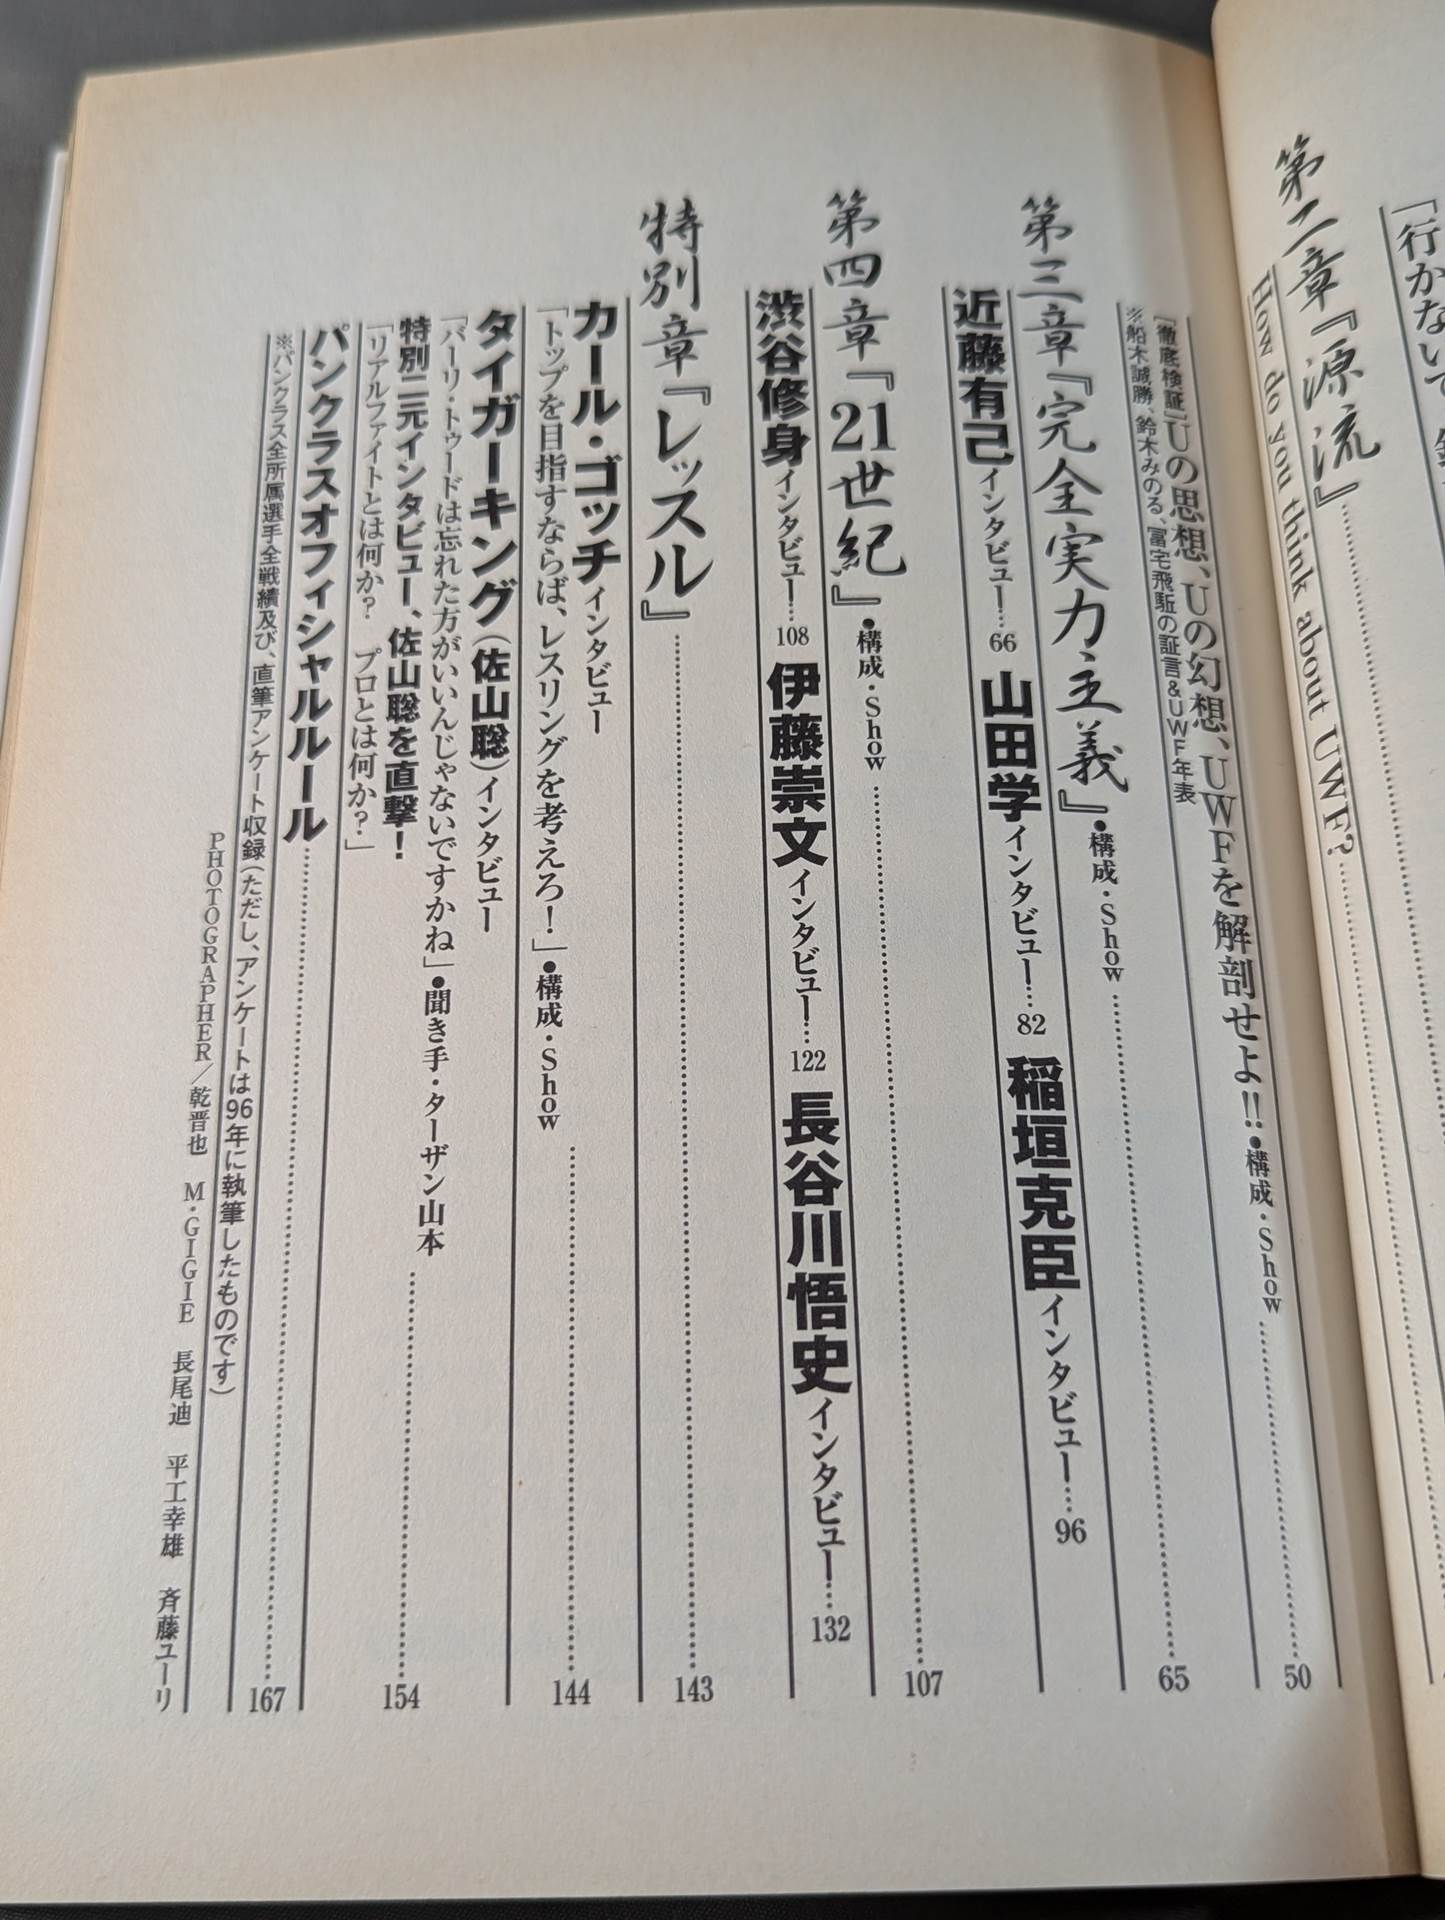 「行かないで
第二章『源流』
How do you think about UWF?
[徹底検証]Uの思想、Uの幻想、UWFを解剖せよ!!●構成・Show 50
※船木誠勝、鈴木みのる、冨宅飛駈の証言&UWF年表
第三章『完全実力主義』●構成・Show 65
近藤有己インタビュー…66 山田学インタビュー…82 稲垣克臣インタビュー…96
第四章『21世紀』●構成・Show 107
渋谷修身インタビュー…108 伊藤崇文インタビュー…122 長谷川悟史インタビュー…132
特別章『レッスル』 143
カール・ゴッチインタビュー
「トップを目指すならば、レスリングを考えろ!」●構成・Show 144
タイガーキング(佐山聡)インタビュー
「バーリ・トゥードは忘れた方がいいんじゃないですかね」●聞き手・ターザン山本 154
特別二元インタビュー、佐山聡を直撃!
「リアルファイトとは何か? プロとは何か?」
パンクラスオフィシャルルール 167
※パンクラス全所属選手全戦績及び、直筆アンケート収録(ただし、アンケートは96年に執筆したものです)
PHOTOGRAPHER/乾晋也 M・GIGIE 長尾迪 平工幸雄 斉藤ユーリ